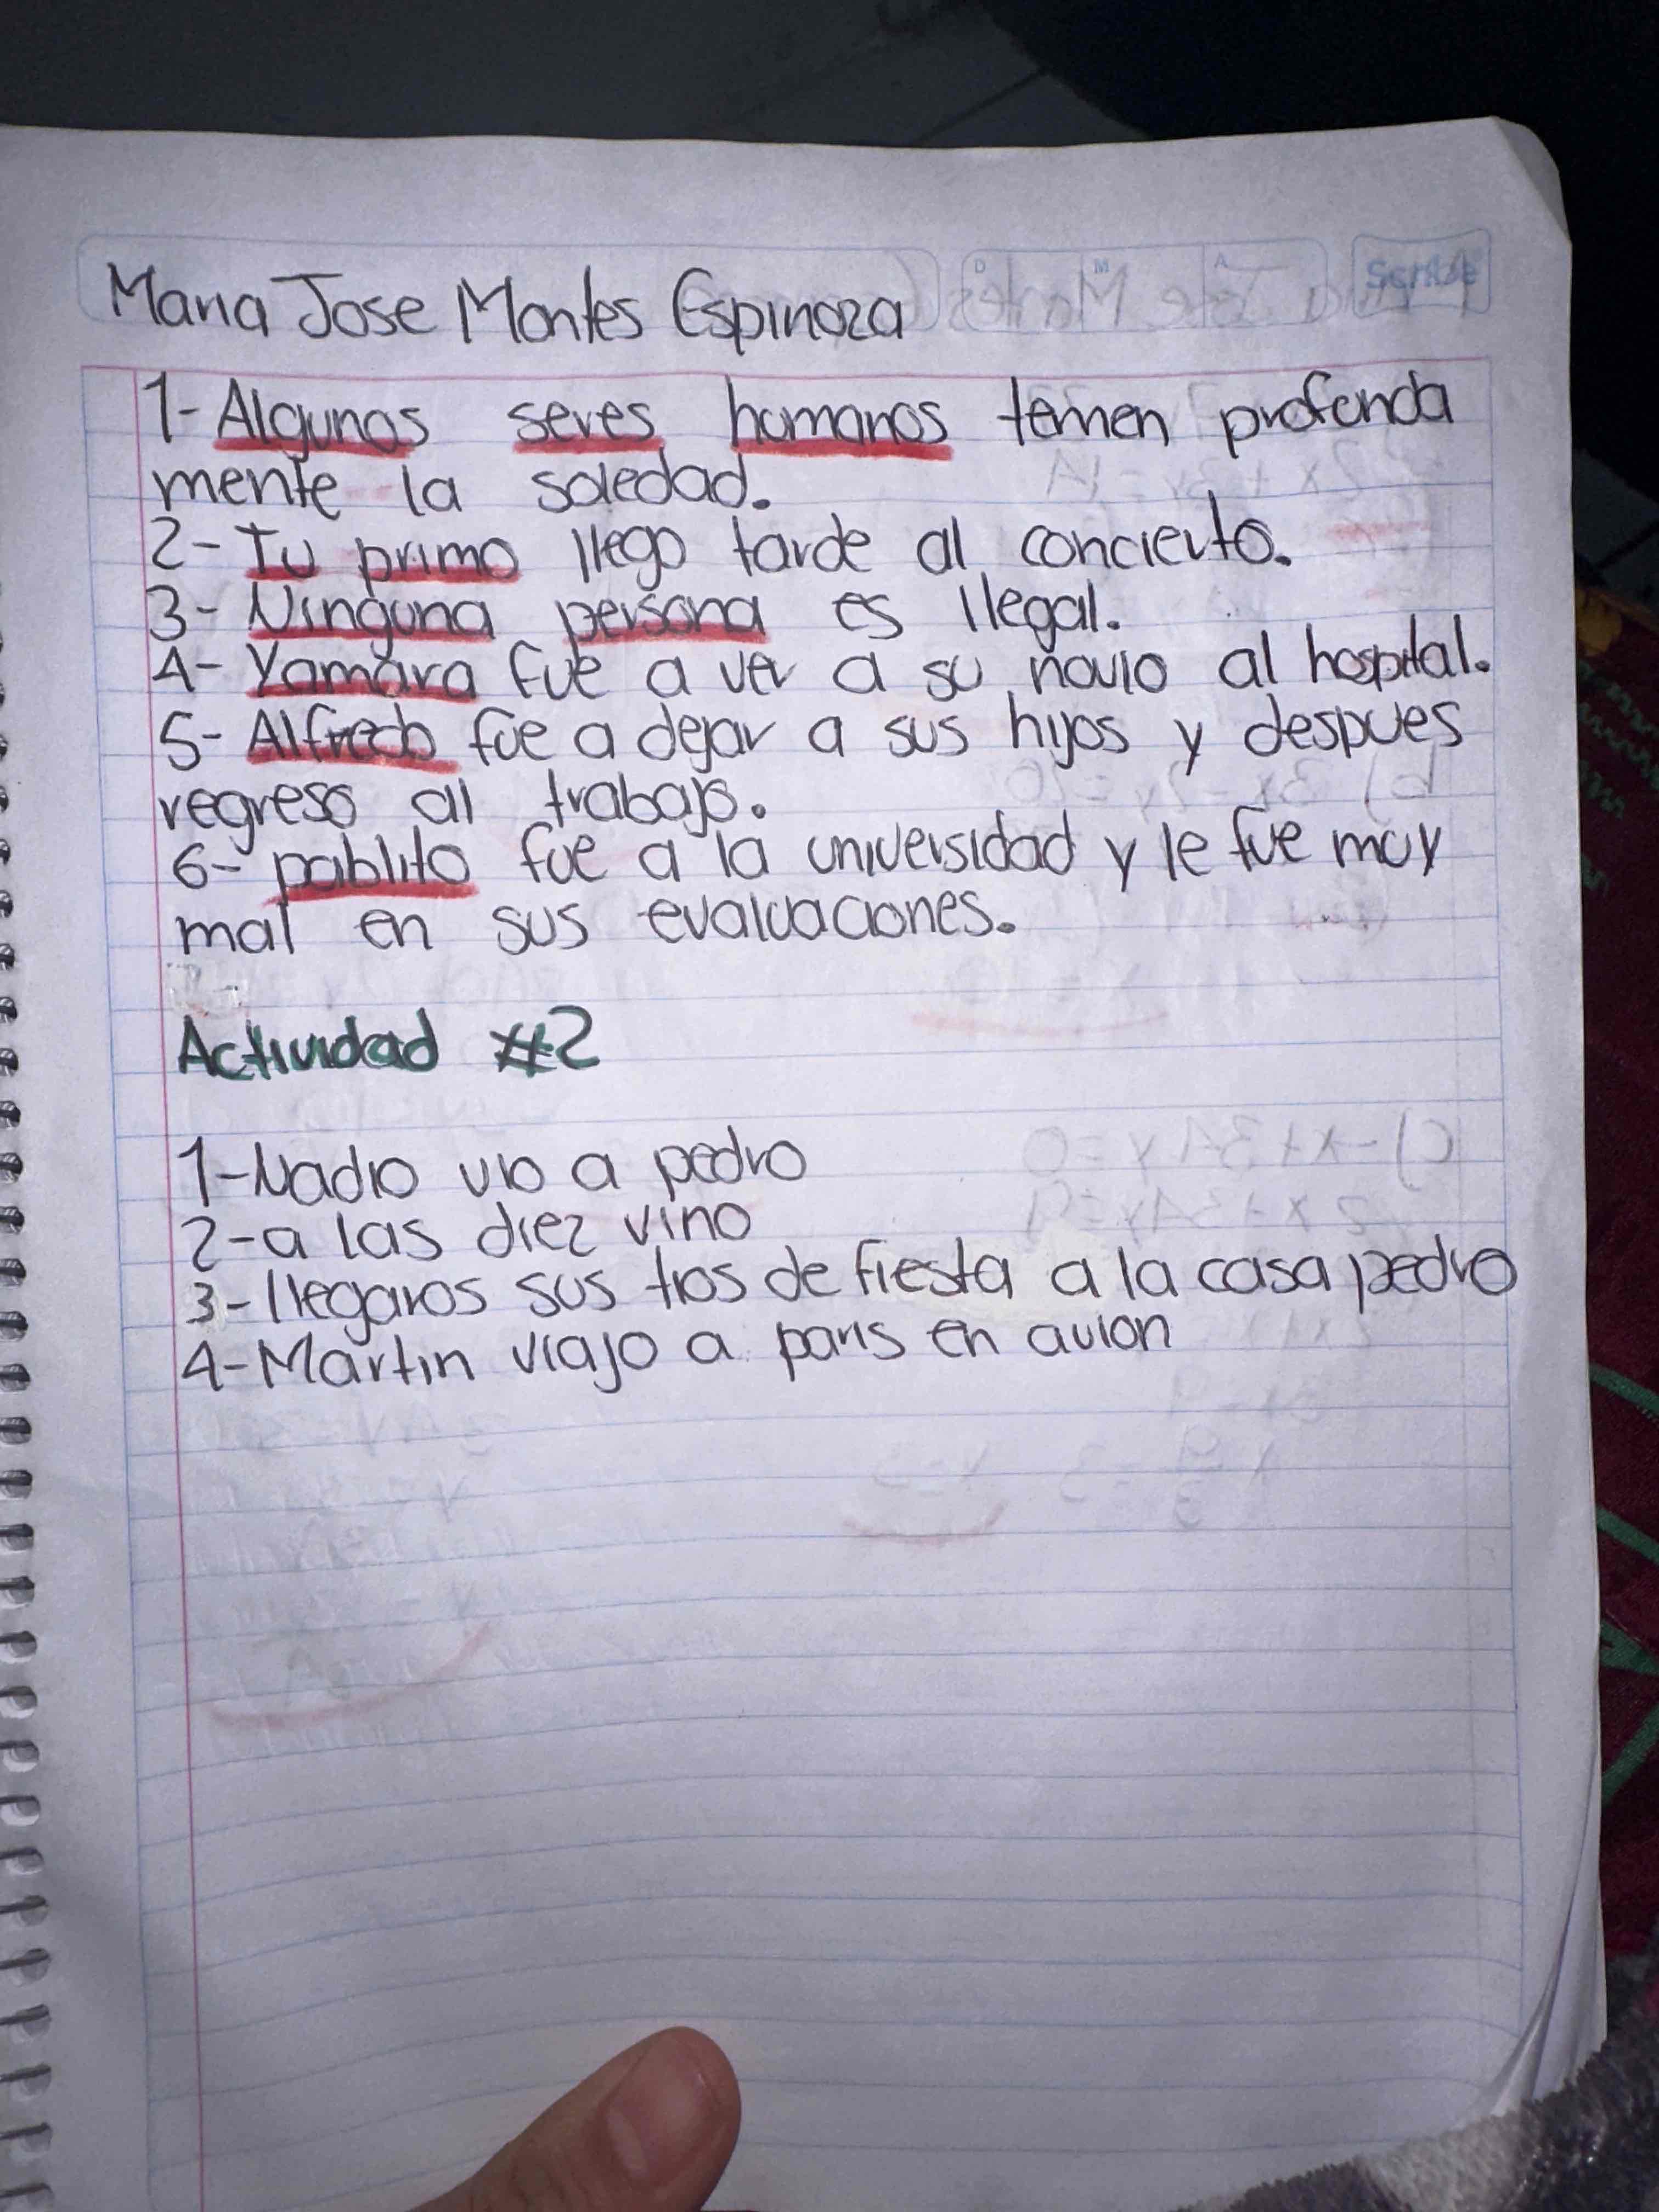 Maria Jose Montes Espinoza
Scribe
D M A
1- Algunos seres humanos temen profunda
mente la soledad.
2- Tu primo llego tarde al concierto.
3- Ninguna persona es Ilegal.
4- Yamara fue a ver a su novio al hospital.
5- Alfredo fue a dejar a sus hijos y despues
regreso al trabajo.
6- pablito fue a la universidad y le fue muy
mal en sus evaluaciones.
Actividad #2
1-Nadio vio a pedro
2-a las diez vino
3-llegaros sus tios de fiesta a la casa pedro
4-Martin viajo a paris en avion